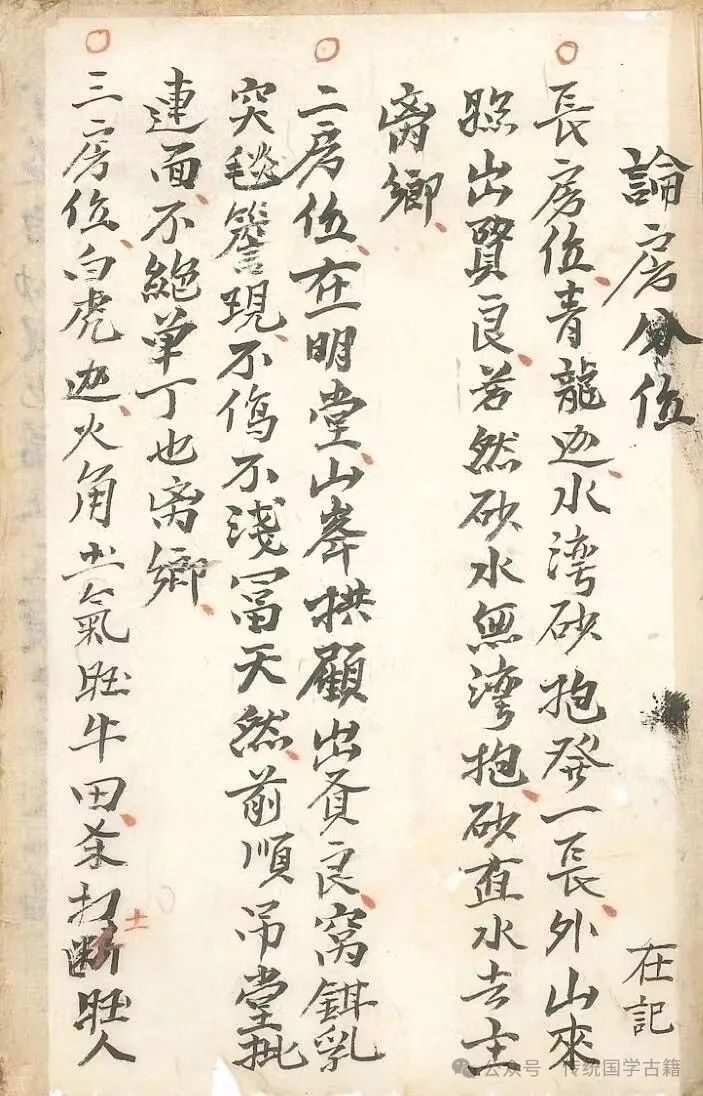 論房分位
在記
長房位青龍边水湾砂抱發一長外山來
照出賢良若然砂水無湾抱砂直水去主
离鄉
二房位在明堂山峯拱顧出賢良窩鉗乳
突毯簷現不傷不淺冨天然前順吊堂批
連面不絶单丁也离鄉
三房位白虎边火角土氣旺牛田杀打断旺人
土
公众号 传统国学古籍